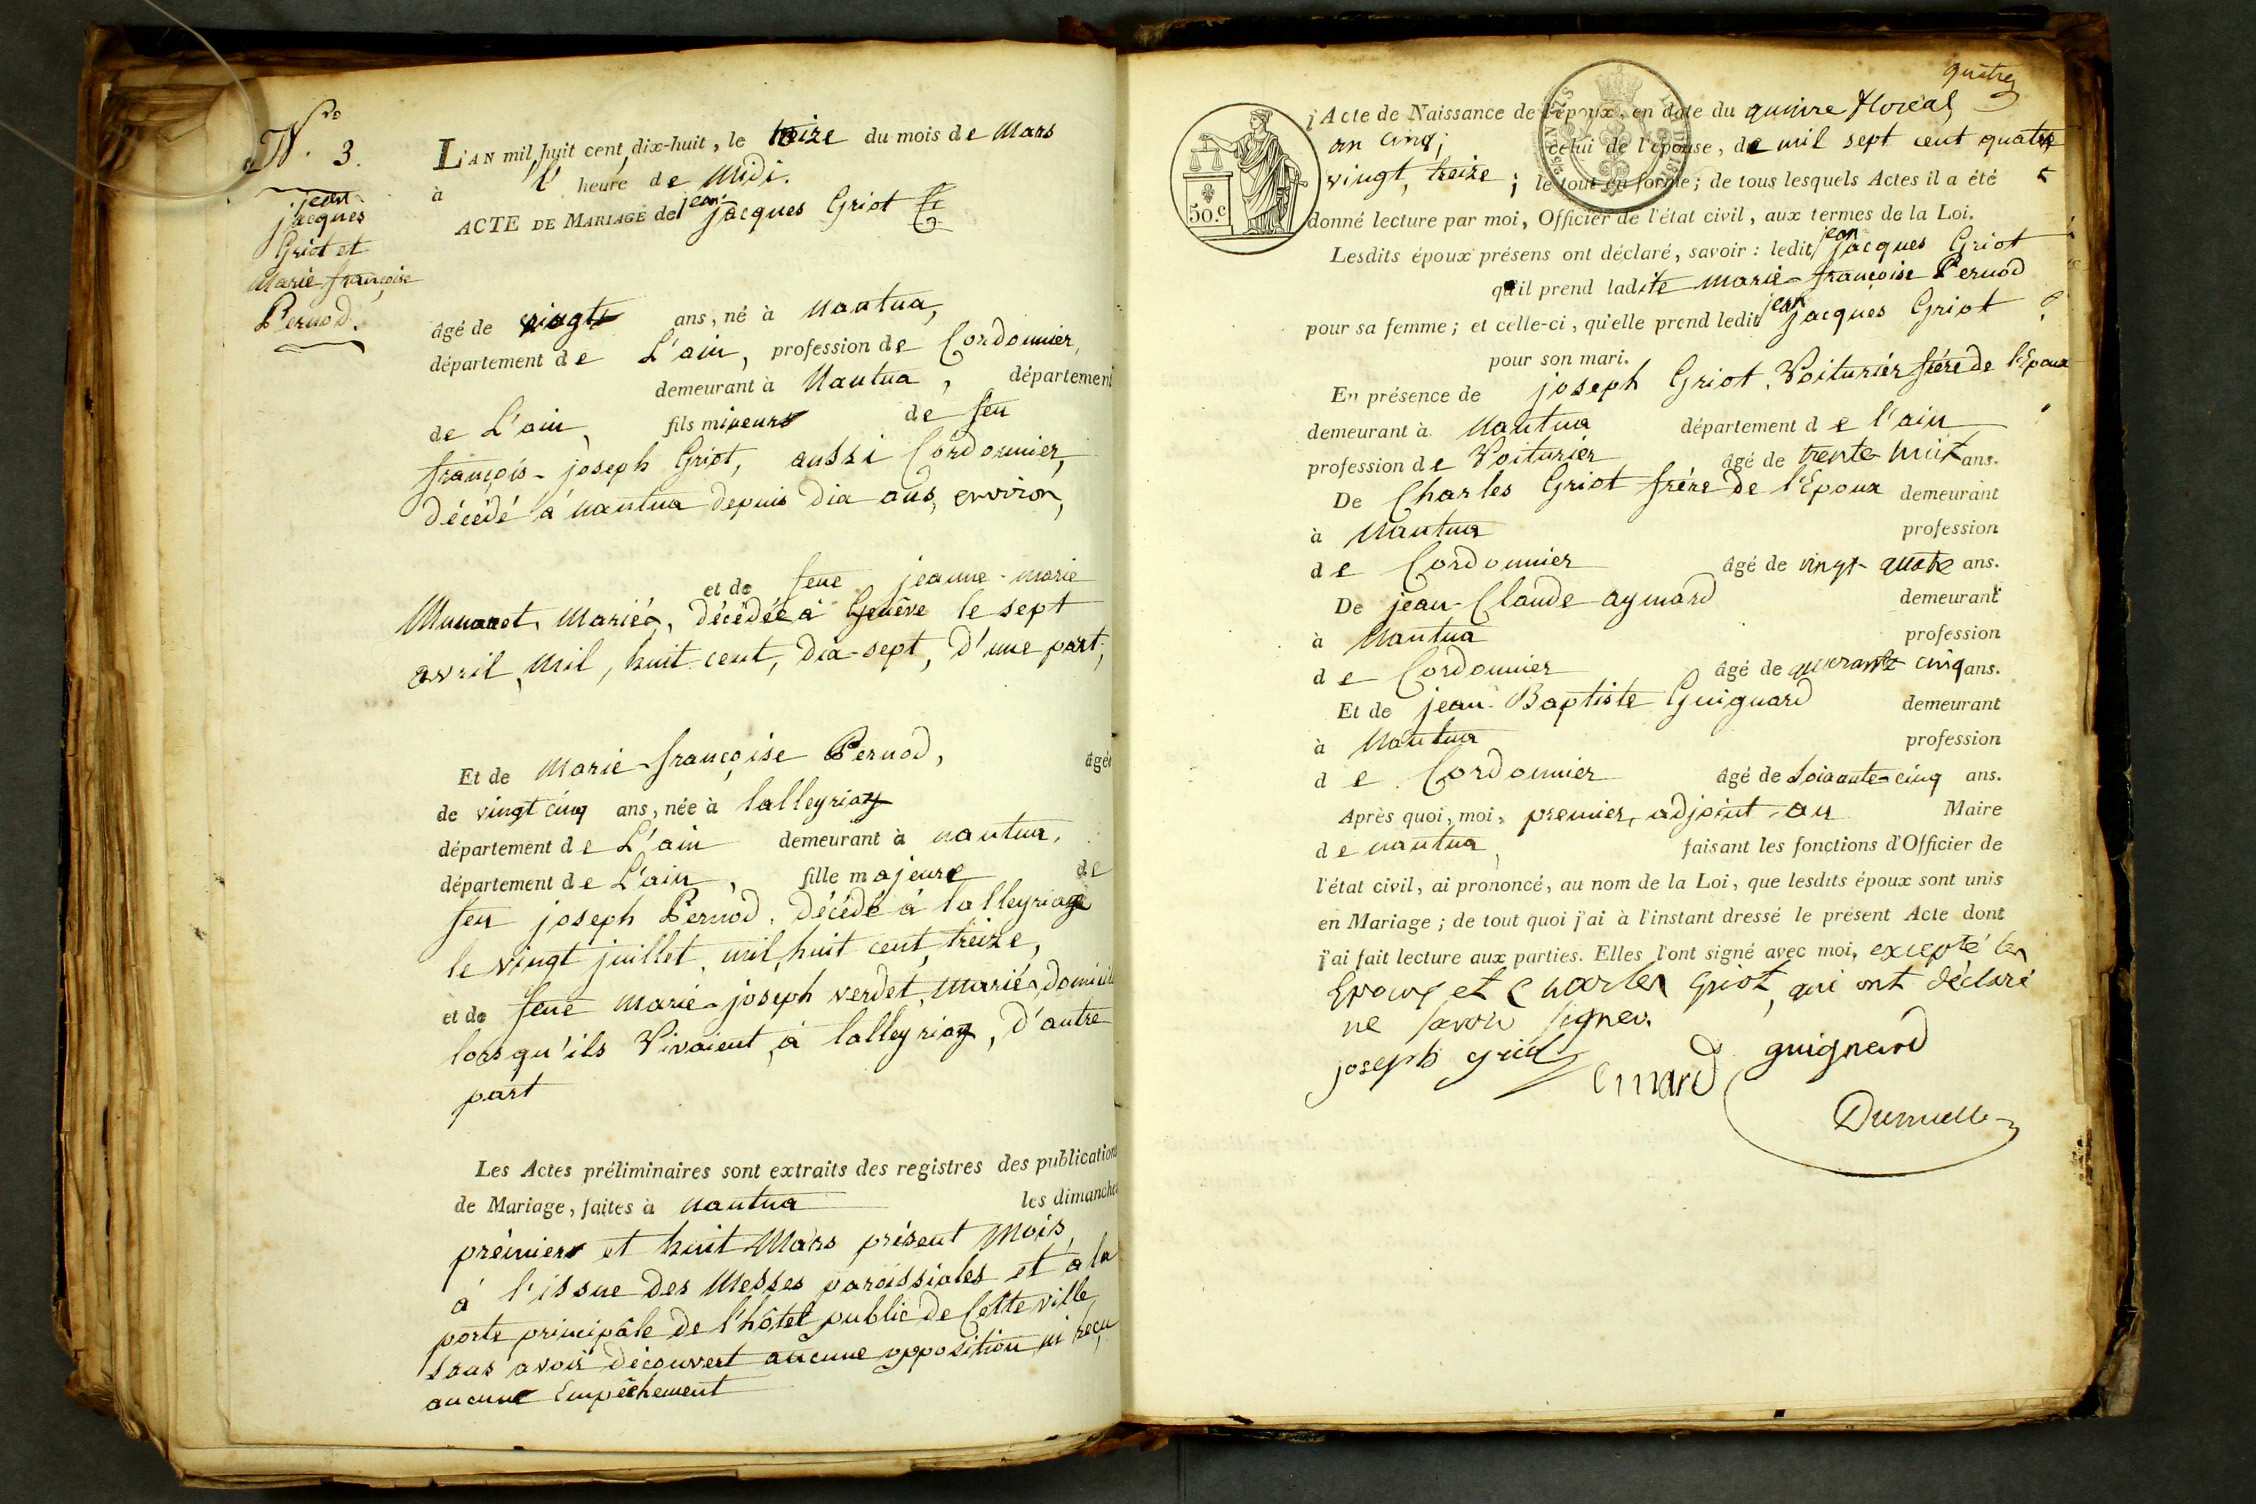 N.ro 3.
jean
jacques
Griot et
Marie françoise
Pernod.
L'AN mil huit cent dix-huit, le treize du mois de Mars
à l' heure de Midi.
ACTE DE MARIAGE de jean jacques Griot
âgé de vingt ans, né à Nantua,
département de L'ain, profession de Cordonnier,
demeurant à Nantua, département
de L'ain, fils mineur de feu
françois-joseph Griot, aussi Cordonnier,
décédé à nantua depuis dix ans, environ,
et de feue jeanne-marie
Munaret, Mariés, décédée à Genève le sept
avril, mil, huit-cent, dix-sept, d'une part;
Et de Marie-françoise Pernod, âgée
de vingt cinq ans, née à lalleyriaz
département de L'ain demeurant à nantua,
département de L'ain, fille majeure de
feu joseph Pernod, décédé à lalleyriaz
le vingt juillet, mil, huit cent, treize,
et de feue Marie-joseph verdet, Mariés, domicilié
lorsqu'ils Vivaient, à lalleyriaz, d'autre
part
Les Actes préliminaires sont extraits des registres des publications
de Mariage, faites à nantua les dimanches
premier et huit Mars présent Mois,
à l'issue des Messes paroissiales et à la
porte principâle de l'hôtel public de Cette ville,
sans avoir découvert aucune opposition ni reçu
aucune Empêchement
quatre
50.c
Acte de Naissance de l'époux, en date du quinze floréal
an cinq; celui de l'épouse, de mil sept cent quatre
vingt, treize; le tout en forme; de tous lesquels Actes il a été
donné lecture par moi, Officier de l'état civil, aux termes de la Loi.
Lesdits époux présens ont déclaré, savoir: ledit jean jacques Griot
qu'il prend ladite marie-françoise Pernod
pour sa femme; et celle-ci, qu'elle prend ledit jean jacques Griot
pour son mari.
En présence de joseph Griot, Voiturier frère de l'Epoux
demeurant à Nantua département de l'ain
profession de Voiturier âgé de trente huit ans.
De Charles Griot frère de l'Epoux demeurant
à Nantua profession
de Cordonnier âgé de vingt quatre ans.
De jean-Claude aymard demeurant
à Nantua profession
de Cordonnier âgé de quarante cinq ans.
Et de jean-Baptiste Guignard demeurant
à Nantua profession
de Cordonnier âgé de soixante-cinq ans.
Après quoi, moi, premier, adjoint au Maire
de nantua, faisant les fonctions d'Officier de
l'état civil, ai prononcé, au nom de la Loi, que lesdits époux sont unis
en Mariage; de tout quoi j'ai à l'instant dressé le présent Acte dont
j'ai fait lecture aux parties. Elles l'ont signé avec moi, excepté les
Epoux et Charles Griot, qui ont déclaré
ne savoir signer.
joseph griot guignard
emard